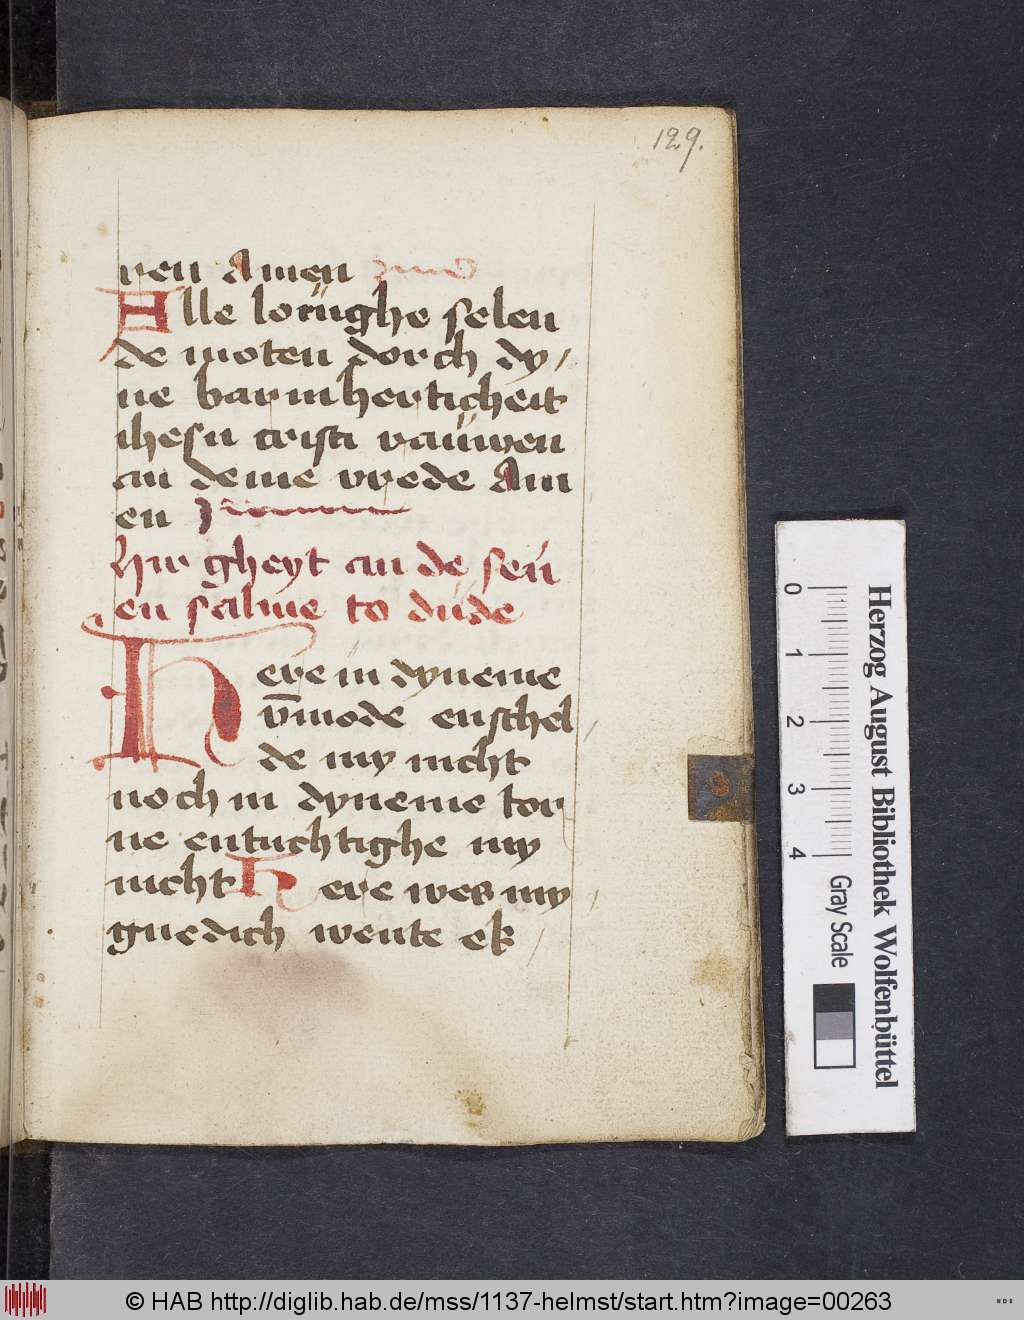 129.
ren Amen
Alle lorüghe selen
de moten dorch dy/
ne barmherticheit
ihesu cristi rauwen
an deme vrede Am
en
Hir gheyt an de seu
en salme to dude
Here in dyneme
v̄mode enschel
de my nicht
noch in dyneme tor
ne entuchtighe my
nicht Here wes my
gnedich wente ek
0 1 2 3 4
Gray Scale
Herzog August Bibliothek Wolfenbüttel
© HAB http://diglib.hab.de/mss/1137-helmst/start.htm?image=00263